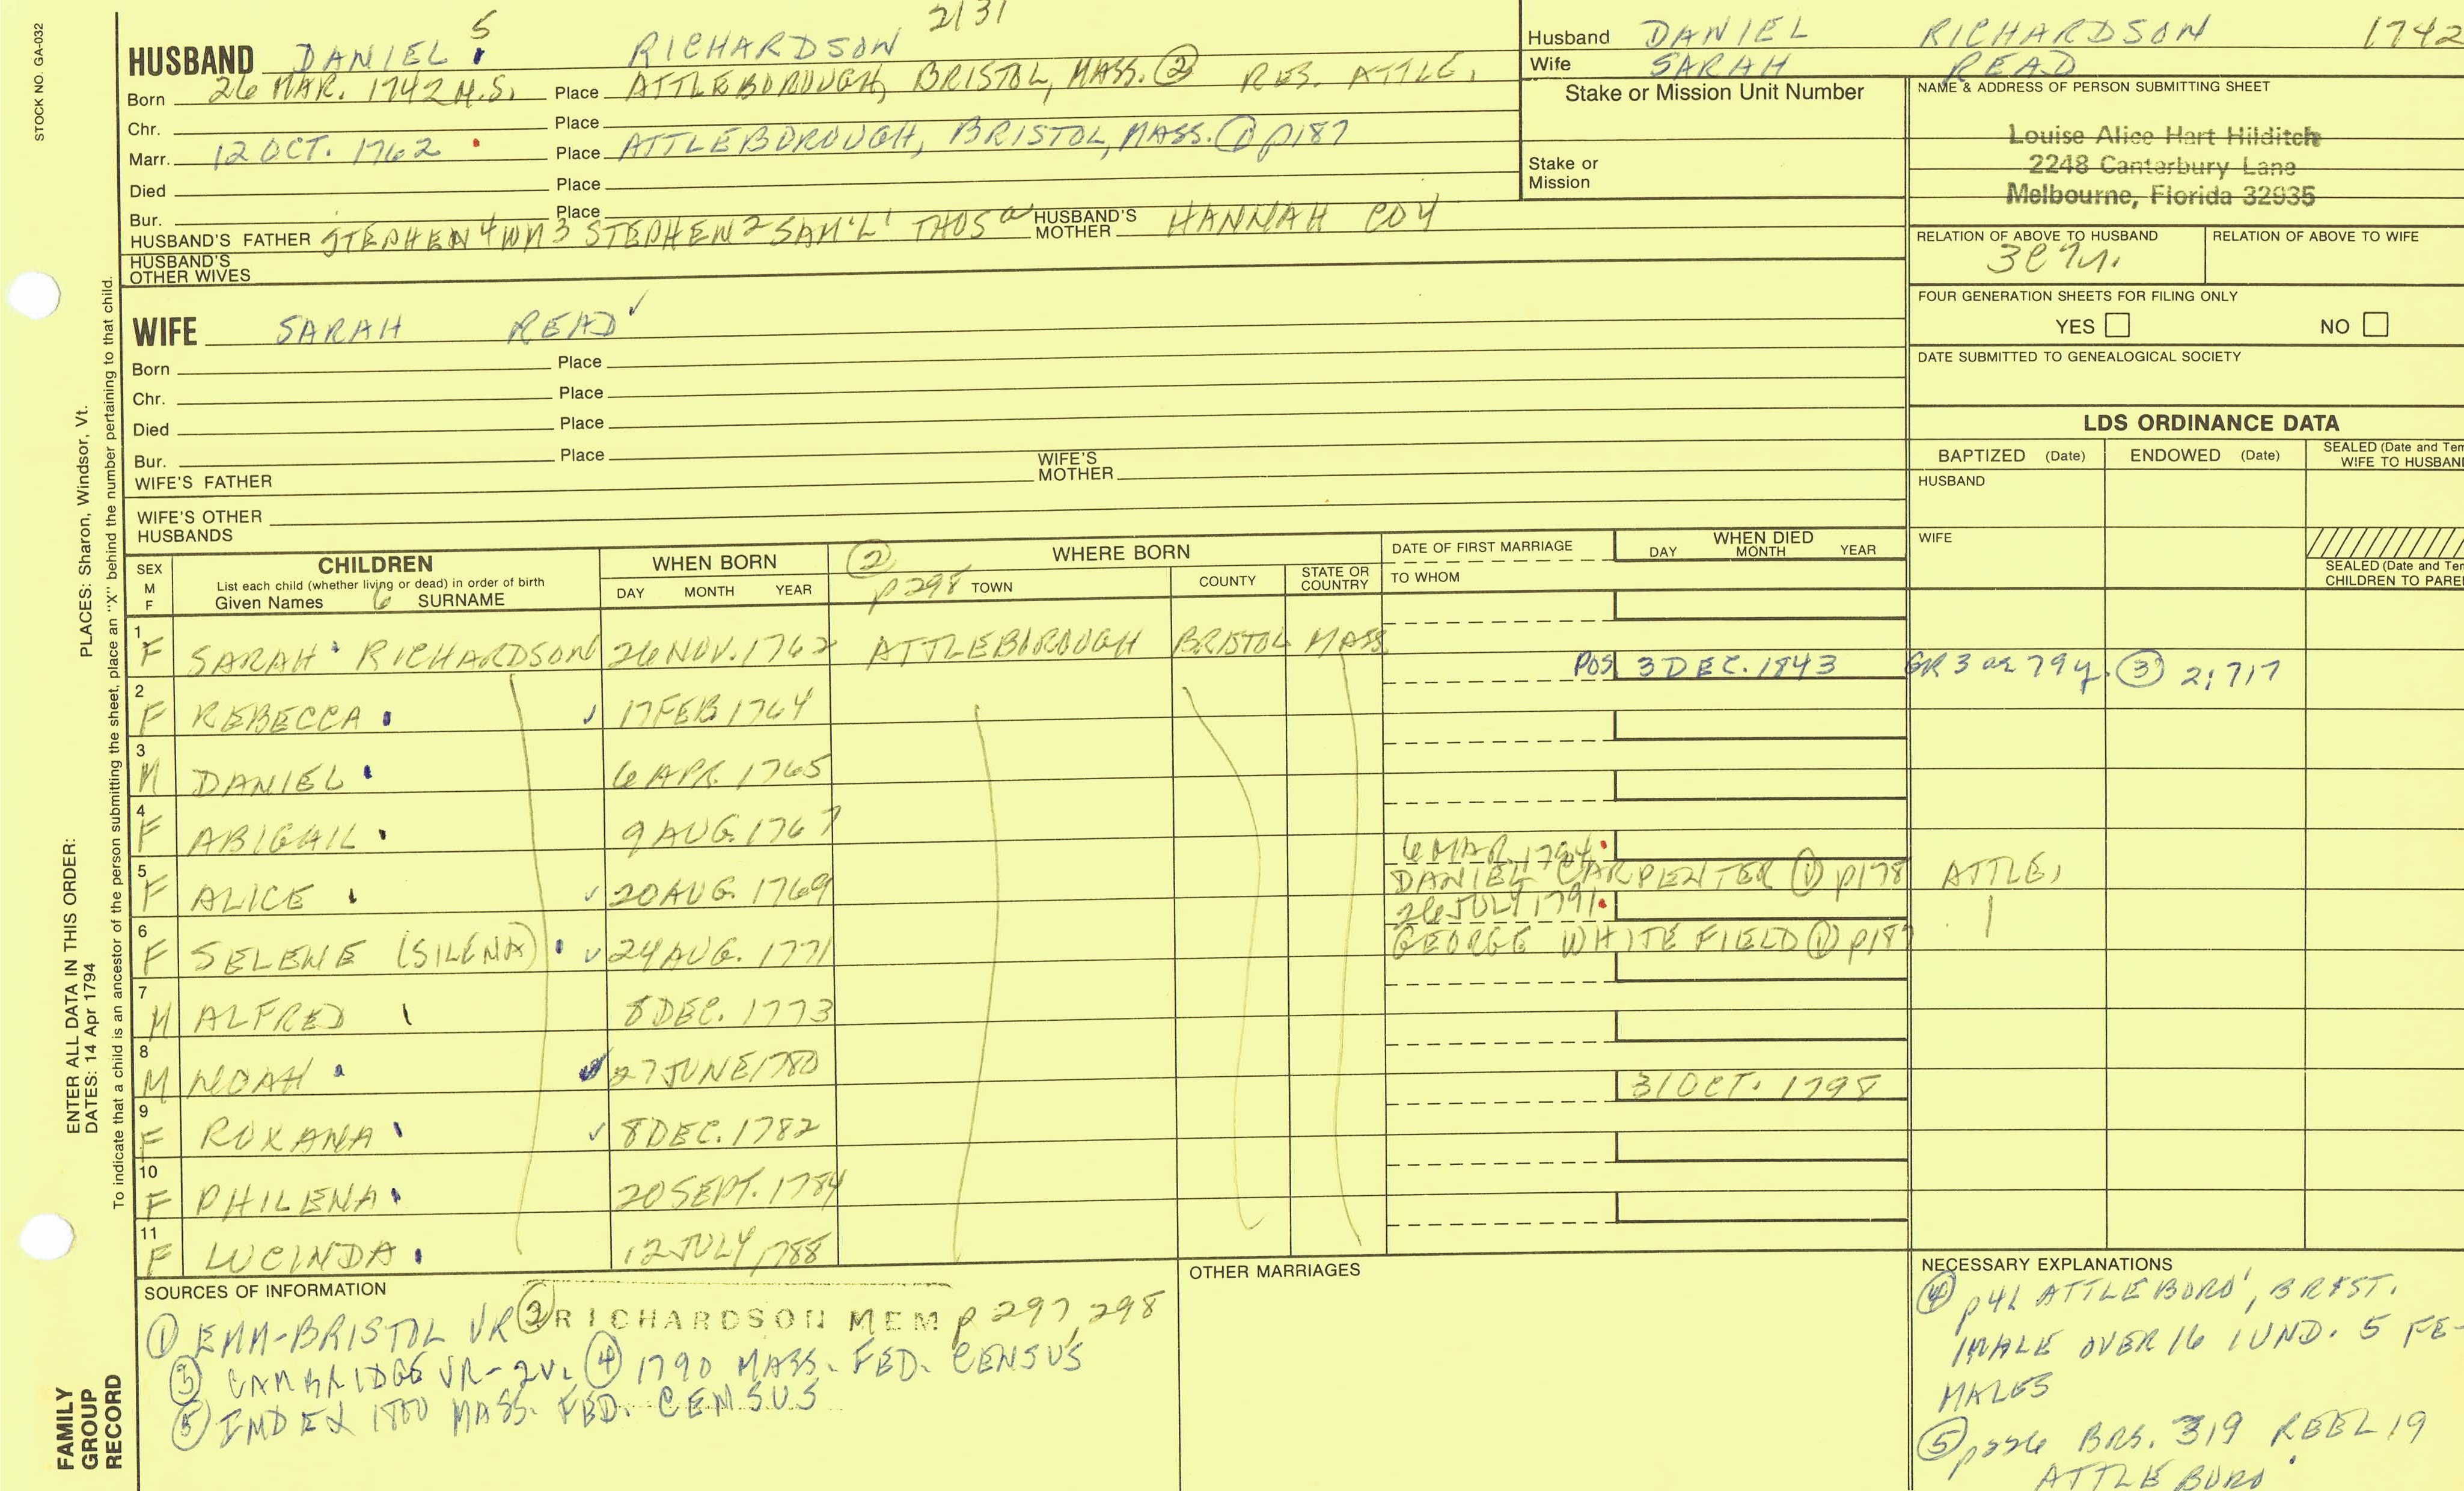 STOCK NO. GA-032
2131
5
HUSBAND DANIEL RICHARDSON
Born 26 MAR. 1742 N.S. Place ATTLEBOROUGH, BRISTOL, MASS. ② RES. ATTLE,
Chr. Place
Marr. 12 OCT. 1762 Place ATTLEBOROUGH, BRISTOL, MASS. ① p187
Died Place
Bur. Place
HUSBAND'S FATHER STEPHEN 4 WM 3 STEPHEN 2 SAM'L 1 THOS a HUSBAND'S MOTHER HANNAH COY
HUSBAND'S OTHER WIVES
Husband DANIEL RICHARDSON 1742
Wife SARAH READ
Stake or Mission Unit Number
Stake or Mission
NAME & ADDRESS OF PERSON SUBMITTING SHEET
Louise Alice Hart Hilditch
2248 Canterbury Lane
Melbourne, Florida 32935
RELATION OF ABOVE TO HUSBAND RELATION OF ABOVE TO WIFE
FOUR GENERATION SHEETS FOR FILING ONLY
YES NO
DATE SUBMITTED TO GENEALOGICAL SOCIETY
WIFE SARAH READ ✓
Born Place
Chr. Place
Died Place
Bur. Place
WIFE'S FATHER WIFE'S MOTHER
WIFE'S OTHER HUSBANDS
LDS ORDINANCE DATA
BAPTIZED (Date) ENDOWED (Date) SEALED (Date and Tem
WIFE TO HUSBAN
HUSBAND
WIFE
SEALED (Date and Tem
CHILDREN TO PARE
SEX M F
CHILDREN
List each child (whether living or dead) in order of birth
Given Names 6 SURNAME
WHEN BORN
DAY MONTH YEAR
② p298
WHERE BORN
TOWN COUNTY STATE OR COUNTRY
DATE OF FIRST MARRIAGE
TO WHOM
WHEN DIED
DAY MONTH YEAR
1 F SARAH RICHARDSON 26 NOV. 1762 ATTLEBOROUGH BRISTOL MASS
POS 3 DEC. 1843 GR 3 ae 79y. ③ 2:717
2 F REBECCA ✓ 17 FEB 1764
3 M DANIEL 6 APR. 1765
4 F ABIGAIL 9 AUG. 1767
6 MAR. 1794
5 F ALICE ✓ 20 AUG. 1769 DANIEL CARPENTER ① p178 ATTLE,
26 JULY 1791
6 F SELENE (SILENA) ✓ 24 AUG. 1771 GEORGE WHITEFIELD ① p187
7 M ALFRED 8 DEC. 1773
8 M NOAH ✓ 27 JUNE 1780
31 OCT. 1798
9 F ROXANA ✓ 8 DEC. 1782
10 F PHILENA 20 SEPT. 1784
11 F LUCINDA 12 JULY 1788
SOURCES OF INFORMATION
① EMM-BRISTOL VR ② RICHARDSON MEM p 297, 298
③ CAMBRIDGE VR-2V. ④ 1790 MASS. FED. CENSUS
⑤ INDEX 1800 MASS. FED. CENSUS
OTHER MARRIAGES
NECESSARY EXPLANATIONS
④ p41 ATTLEBORO', BRIST.
1 MALE OVER 16 1 UND. 5 FE-
MALES
⑤ p226 BRS. 319 REEL 19
ATTLEBORO'
ENTER ALL DATA IN THIS ORDER:
DATES: 14 Apr 1794
PLACES: Sharon, Windsor, Vt.
To indicate that a child is an ancestor of the person submitting the sheet, place an "X" behind the number pertaining to that child.
FAMILY
GROUP
RECORD